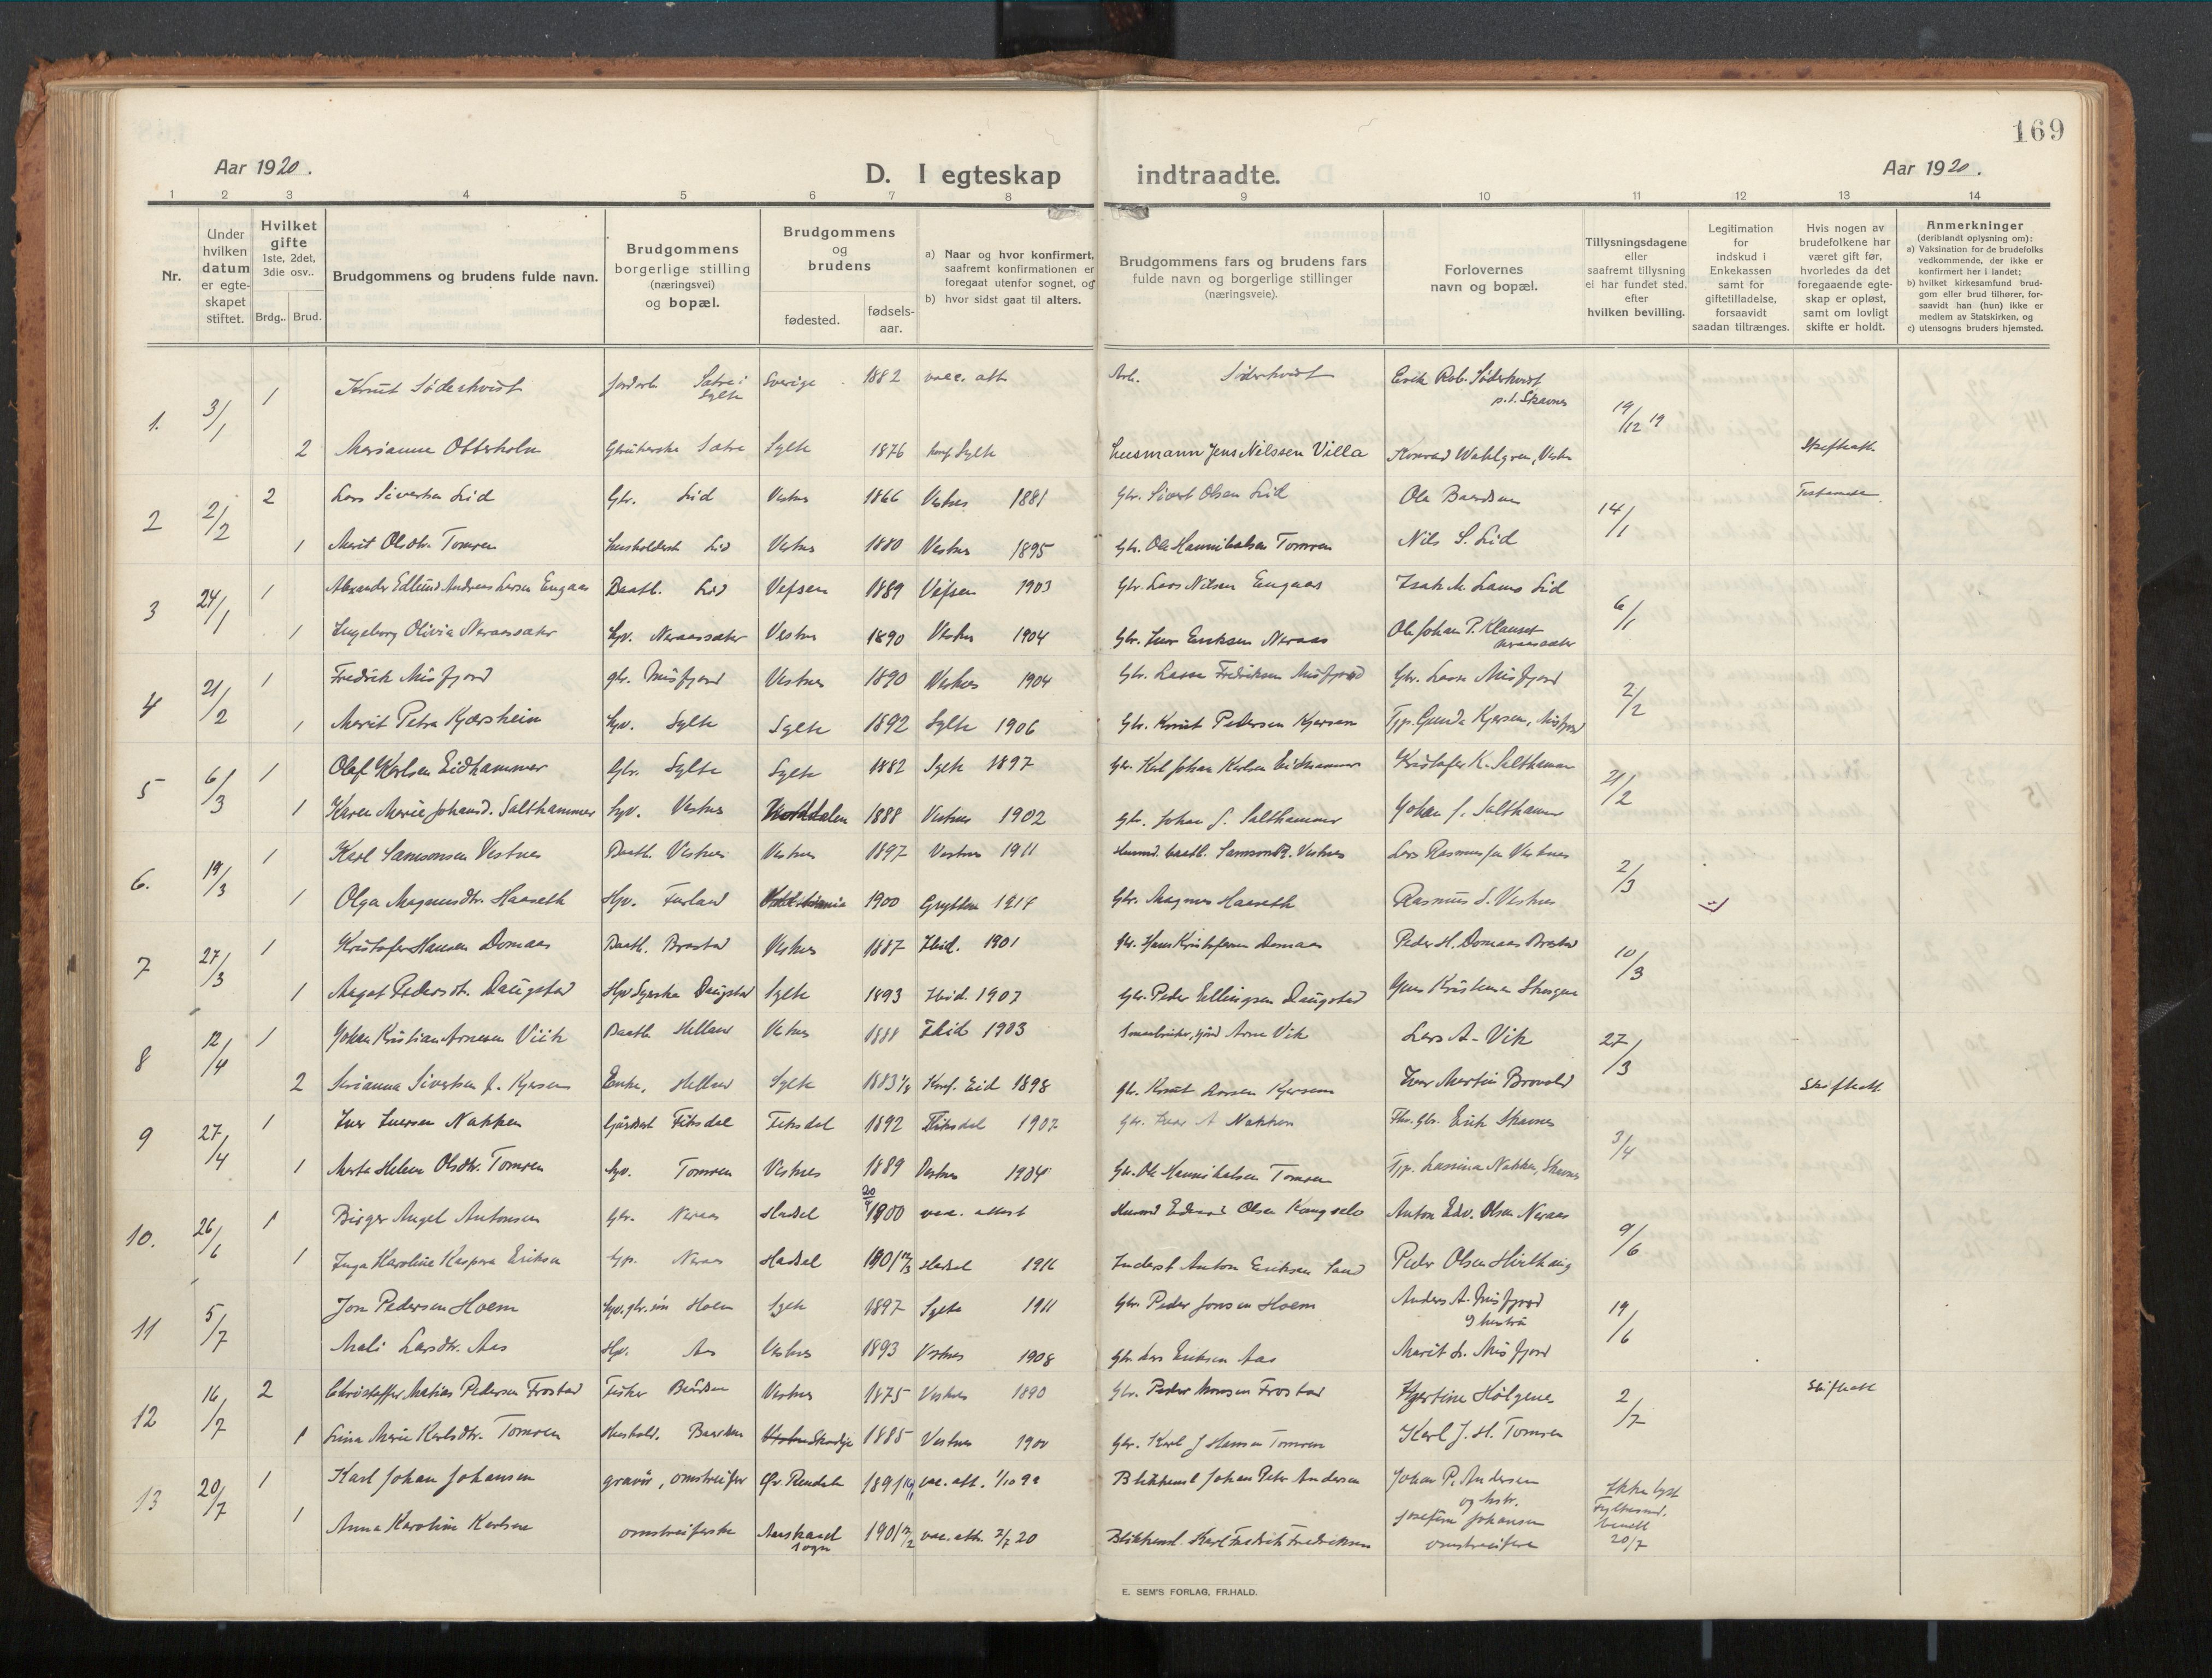 169
Aar 1920.
D. I egteskap indtraadte.
Aar 1920.
1 2 3 4 5 6 7 8 9 10 11 12 13 14
Nr.
Under hvilken datum er egte-skapet stiftet.
Hvilket gifte 1ste, 2det, 3die osv..
Brdg.. Brud.
Brudgommens og brudens fulde navn.
Brudgommens borgerlige stilling (næringsvei) og bopæl.
Brudgommens og brudens
fødested.
fødsels-aar.
a) Naar og hvor konfirmert, saafremt konfirmationen er foregaat utenfor sognet, og
b) hvor sidst gaat til alters.
Brudgommens fars og brudens fars fulde navn og borgerlige stillinger (næringsveie).
Forlovernes navn og bopæl.
Tillysningsdagene eller saafremt tillysning ei har fundet sted. efter hvilken bevilling.
Legitimation for indskud i Enkekassen samt for giftetilladelse, forsaavidt saadan tiltrænges.
Hvis nogen av brudefolkene har været gift før, hvorledes da det foregaaende egte-skap er opløst, samt om lovligt skifte er holdt.
Anmerkninger (deriblandt oplysning om):
a) Vaksination for de brudefolks vedkommende, der ikke er konfirmert her i landet;
b) hvilket kirkesamfund brud-gom eller brud tilhører, for-saavidt han (hun) ikke er medlem av Statskirken, og
c) utensogns bruders hjemsted.
1. 3/1 1 Knut Söderkvist Sverige 1882 vacc. att. Arb. Söderkvist Erik Rob. Söderkvist p.t. Skavnes 19/12 19
2 Marianne Otterholm Sylte 1876 konf. Sylte Husmann Jens Nilssen Villa Konrad Wahlgren, Vestn
2 2/2 2 Lars Sivertsen Lid Gbr. Lid Vestnes 1866 Vestnes 1881 Gbr. Sivert Olsen Lid Ole Baardsen 14/1
1 Marit Olsdtr. Tomren Lid Vestnes 1880 Vestnes 1895 Gbr. Ole Hannibalsen Tomren Nils S. Lid
3 24/1 1 Alexander Edlund Andreas Larsen Engaas Baatb. Lid Vefsen 1889 Vefsen 1903 Gbr. Lars Nilsen Engaas Isak M. Lid 6/1
1 Ingeborg Olivia Neraassæter Hp. Neraassæter Vestnes 1890 Vestnes 1904 Gbr. Iver Eriksen Neraas Ole Johan P. Klauset Neraassæter
4 21/2 1 Fredrik Misfjord gbr. Misfjord Vestnes 1890 Vestnes 1904 Gbr. Lasse Fredriksen Misfjord Gbr. Lasse Misfjord 2/2
1 Marit Petra Kjærshein Hp. Sylte Sylte 1892 Sylte 1906 Gbr. Knut Pedersen Kjersem Tjp. Gunda Kjersem, Misfjord
5 6/3 1 Olaf Karlsen Eidhammer Gbr. Sylte Sylte 1882 Sylte 1897 Gbr. Karl Johan Karlsen Eidhammer Kristofer K. Salthammer 21/2
1 Karen Marie Johansd. Salthammer Hp. Vestnes 1888 Vestnes 1902 Gbr. Johan J. Salthammer Johan J. Salthammer
6. 19/3 1 Karl Samsonsen Vestnes Baatb. Vestnes Vestnes 1897 Vestnes 1911 Samson R. Vestnes Lars Rasmussen Vestnes 2/3
1 Olga Magnusdtr. Haaseth Hp. Furland 1900 Grytten 1914 Gbr. Magnus Haaseth Rasmus S. Vestnes
7 27/3 1 Kristofer Hansen Domaas Baatb. Brastad Vestnes 1887 Ibid. 1901 Gbr. Hans Kristofersen Domaas Peder H. Domaas Brastad 10/3
1 Magat Pedersdt. Daugstad Daugstad Sylte 1893 Ibid. 1907 Gbr. Peder Ellingsen Daugstad
8 12/4 1 Johan Kristian Arnesen Viik Baatb. Helland Vestnes 1888 Ibid 1903 Arne Vik Lars A. Vik 27/3
2 Serianna Sivertsen f. Kjersem Enke, Helland Sylte 1883 1/8 Konf. Eid 1898 Gbr. Knut Larsen Kjersem Iver Martin Brovold Skifteatt.
9 27/4 1 Iver Iversen Nakken Fiksdal Fiksdal 1892 Fiksdal 1907 Gbr. Ivar A Nakken Fhv. Gbr. Erik Skavnes 3/4
1 Marta Helene Olsdtr. Tomren Hp. Tomren Vestnes 1889 Vestnes 1904 Gbr. Ole Hannibalsen Tomren Tjp. Lassina Nakken, Skavnes
10. 26/6 1 Birger Angel Antonsen Gbr. Neraas Hadsel 20/4 1900 vac. attest Edvard Olsen Anton Edv. Olsen Neraas 9/6
1 Inga Karoline Kaspara Eriksen Hp. Neraas Hadsel 1901 Hadsel 1916 Inderst Anton Eriksen Sand Peder Olsen
11 5/7 Jon Pedersen Hoem Hoem Sylte 1897 Sylte 1911 Gbr Peder Jonsen Hoem Anders A. Misfjord og hustru 19/6
Mali Larsdtr. Aas Hp. Aas Vestnes 1893 Vestnes 1908 Gbr. Lars Eriksen Aas Marit L. Misfjord
12 16/7 2 Christoffer Matias Pedersen Frostad Fisker Vestnes 1875 Vestnes 1890 Gbr. Peder Monsen Frostad Hjertine Helgenes 2/7 Skifteatt
1 Lina Marie Karlsdtr. Tomren Skodje 1885 Vestnes 1900 Gbr. Karl J Hansen Tomren Karl J. H. Tomren
13 20/7 1 Karl Johan Johansen gravør, omstreifer Øv. Rendalen 1891 vac. att. 1/10 98 Blikkensl Johan Peter Andersen Johan P. Andersen og hstr. Josefine Johansen omstreifere Ikke lyst Fylkesmd. bevill 20/7
1 Anna Karoline Karlsen omstreiferske Aurskaad sogn 1901 vac. att. 2/7 20 Blikkensl. Karl Fredrik Fredriksen
E. SEM'S FORLAG, FR.HALD.